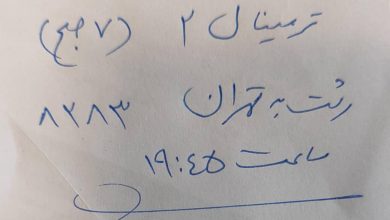 ترمینال ۲ (۷ صبح)
رشت به تهران ۸۲۸۳
ساعت ۱۹:۴۵